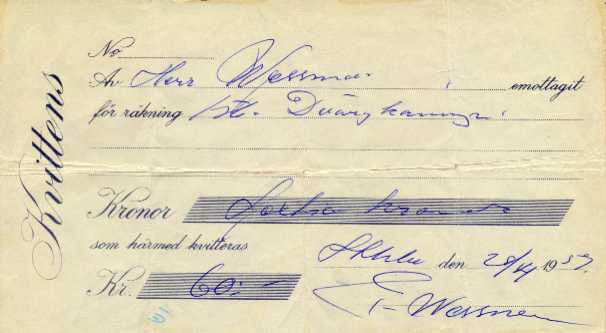 Kvittens
No
Av Herr Wessman emottagit
för räkning st. Dvärgkanin
Kronor Sextio kronor
som härmed kvitteras
Sthlm den 28/4 1957
Kr. 60:-